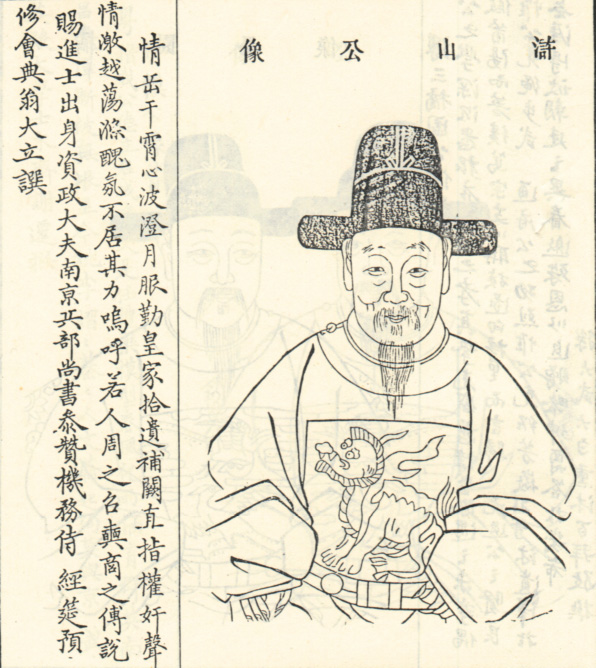 滸山公像
情岳干霄心波澄月服勤皇家拾遺補闕直指權奸聲
情激越蕩滌醜氛不居其力嗚呼若人周之召奭商之傅說
賜進士出身資政大夫南京兵部尚書叅贊機務侍 經筵預
修會典翁大立譔